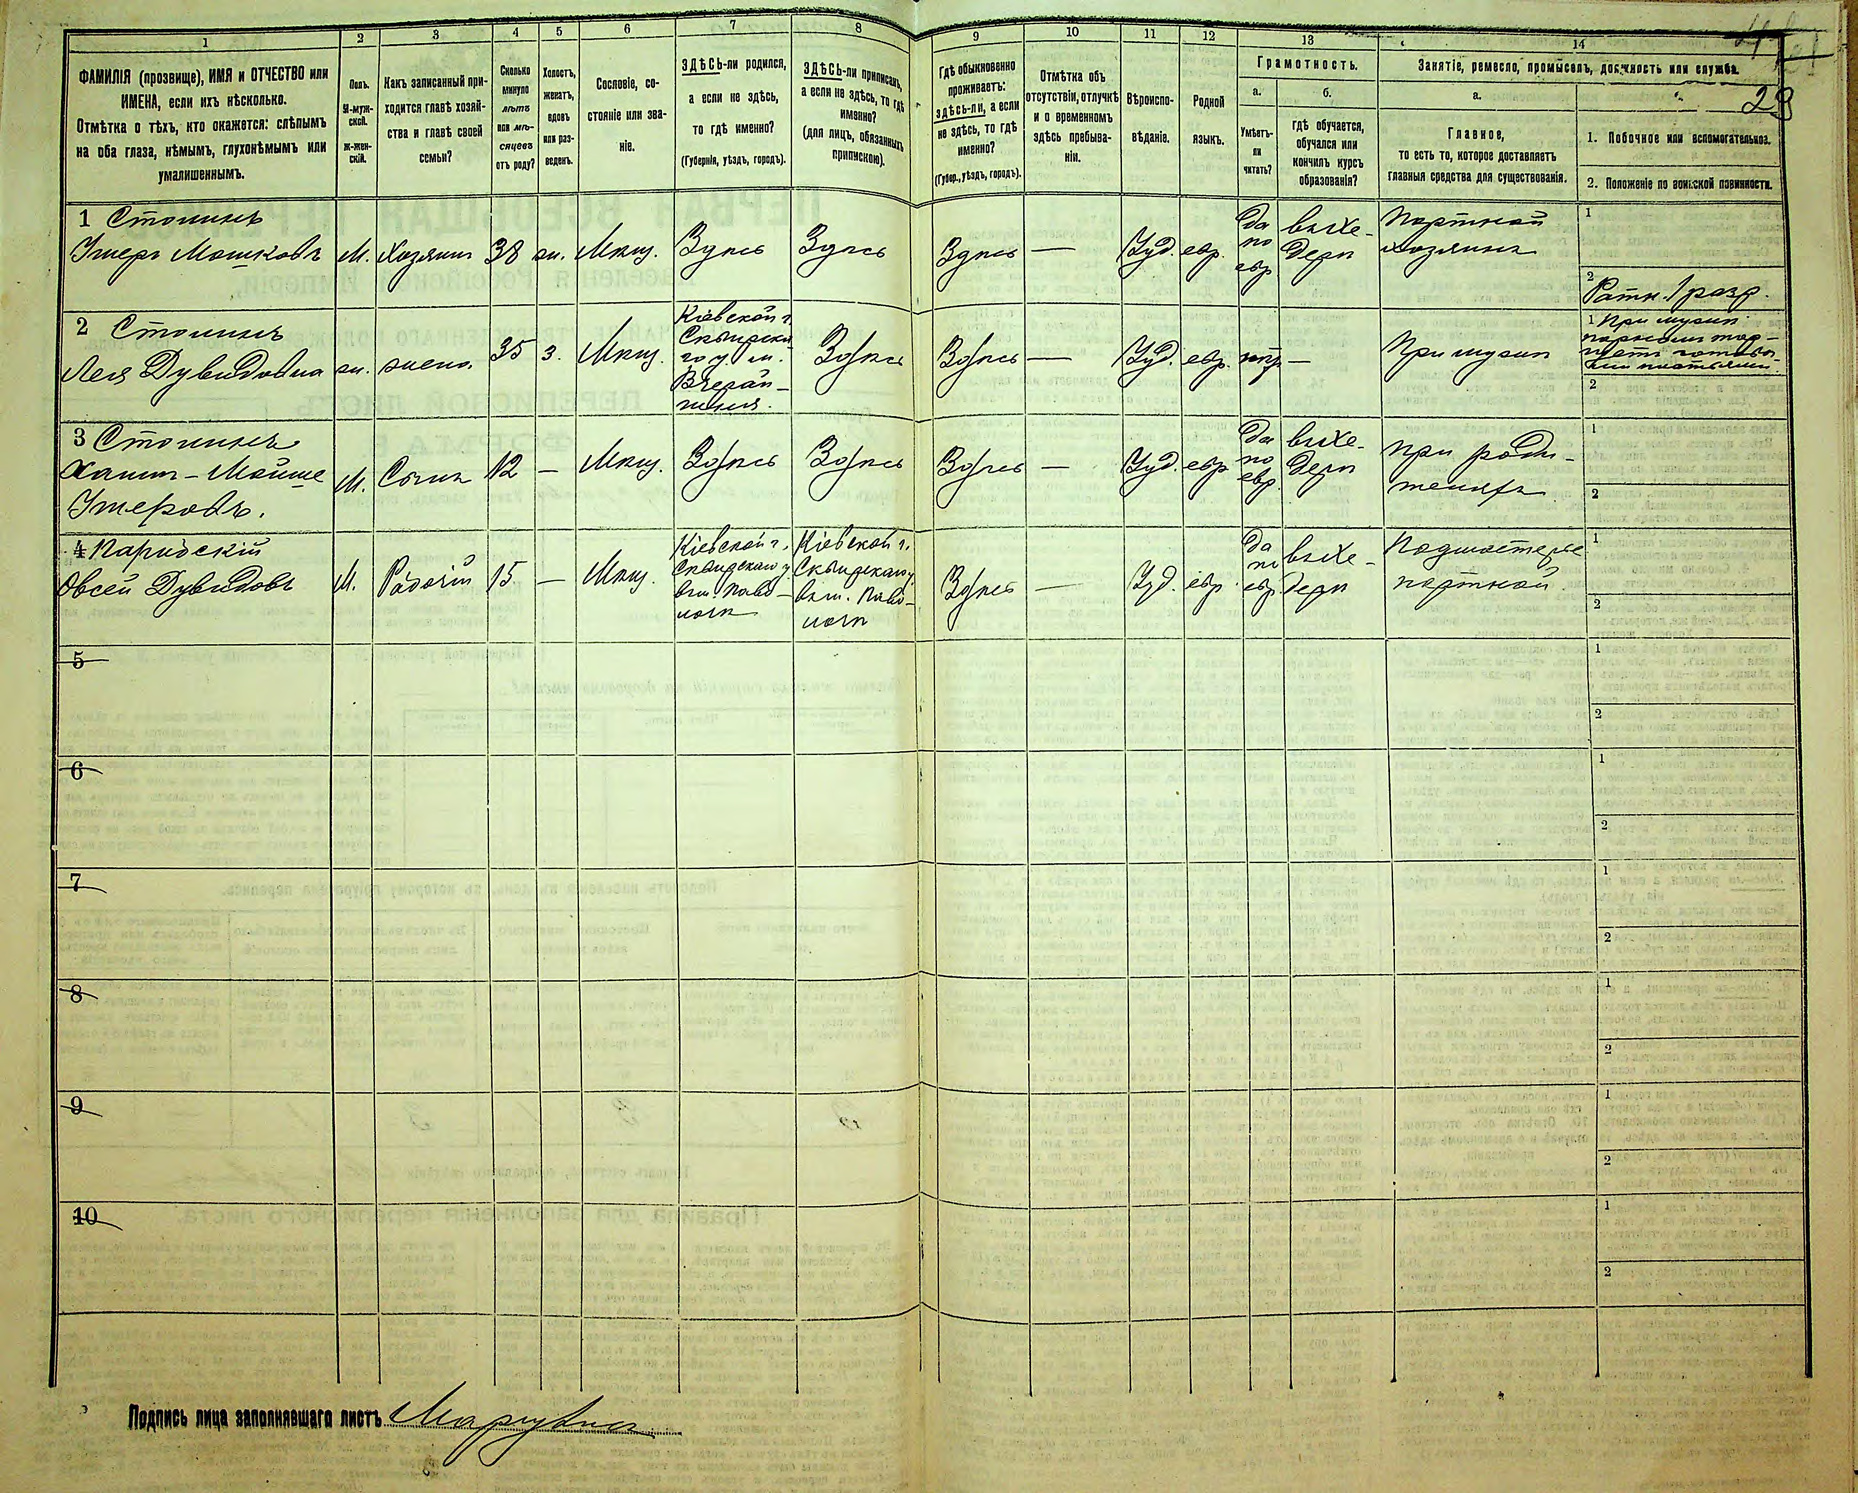 1 2 3 4 5 6 7 8 9 10 11 12 13 14
ФАМИЛІЯ (прозвище), ИМЯ и ОТЧЕСТВО или
ИМЕНА, если ихъ нѣсколько.
Отмѣтка о тѣхъ, кто окажется: слѣпымъ
на оба глаза, нѣмымъ, глухонѣмымъ или
умалишеннымъ.
Полъ.
М-муж-
ской.
Ж-жен-
скій.
Какъ записанный при-
ходится главѣ хозяй-
ства и главѣ своей
семьи?
Сколько
минуло
лѣтъ
или мѣ-
сяцевъ
отъ роду?
Холостъ,
женатъ,
вдовъ
или раз-
веденъ.
Сословіе, со-
стояніе или зва-
ніе.
ЗДѢСЬ-ли родился,
а если не здѣсь,
то гдѣ именно?
(Губернія, уѣздъ, городъ).
ЗДѢСЬ-ли приписанъ,
а если не здѣсь, то гдѣ
именно?
(для лицъ, обязанныхъ
припискою).
Гдѣ обыкновенно
проживаетъ:
здѣсь-ли, а если
не здѣсь, то гдѣ
именно?
(Губер., уѣздъ, городъ).
Отмѣтка объ
отсутствіи, отлучкѣ
и о временномъ
здѣсь пребыва-
ніи.
Вѣроиспо-
вѣданіе.
Родной
языкъ.
Грамотность.
а.
Умѣетъ-
ли
читать?
б.
гдѣ обучается,
обучался или
кончилъ курсъ
образованія?
Занятіе, ремесло, промыселъ, должность или служба.
28
а.
Главное,
то есть то, которое доставляетъ
главныя средства для существованія.
1. Побочное или вспомогательное.
2. Положеніе по воинской повинности.
1
Мошковъ М. Хозяинъ 38 ж. Мѣщ. Здѣсь Здѣсь Здѣсь — Іуд. евр. Да по евр. въ хе-дерѣ Портной хозяинъ
1
2 Ратн. 1 разр.
2
Лея Дувидовна ж. жена. 35 з. Мѣщ. Кіевской г. Сквирска-го у. м. Здѣсь Здѣсь — Іуд. евр. — При мужѣ
1 При мужѣ
2
3
Хаимъ-Мойше М. Сынъ 12 — Мѣщ. Здѣсь Здѣсь Здѣсь — Іуд. евр. Да по евр. въ хе-дерѣ при роди-теляхъ
1
2
4
Овсей Дувидовъ М. Рабочій 15 — Мѣщ. Кіевской г. Сквирскаго у. въ м. Паво-лочи Кіевской г. Сквирскаго у. въ м. Паво-лочи Здѣсь — Іуд. евр. Да по евр. въ хе-дерѣ Подмастерье портной.
1
2
5
1
2
6
1
2
7
1
2
8
1
2
9
1
2
10
1
2
Подпись лица заполнявшаго листъ